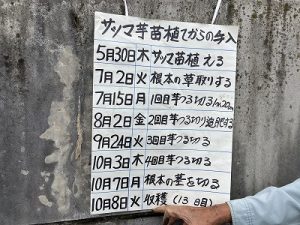 サツマ芋苗植てからの手入
5月30日木サツマ苗植える
7月2日火根本の草取りする
7月15日月1回目芋つる切る
8月2日金2回目芋つる切り追肥する
9月24日火3回目芋つる切る
10月3日木4回目芋つる切る
10月7日月根本の茎を切る
10月8日火収穫(13 日目)